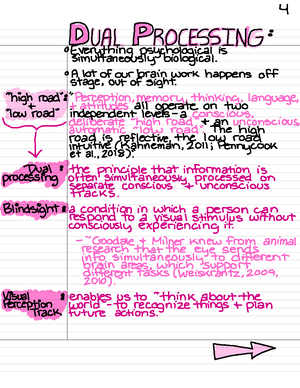 4
DUAL PROCESSING:
Everything psychological is
simultaneously biological.
A lot of our brain work happens off
stage, out of sight.
"high road"
+
"low road"
: ~Perception, memory, thinking, language,
+ attitudes all operate on two
independent levels - a conscious,
deliberate "high road" + an unconscious,
automatic "low road". The high
road is reflective, the low road
intuitive (Kahneman, 2011; Pennycook
et al., 2018).
Dual
processing
: the principle that information is
often simultaneously processed on
separate conscious + unconscious
tracks.
Blindsight : a condition in which a person can
respond to a visual stimulus without
consciously experiencing it.
- ~Goodale + Milner knew from animal
research that the eye sends
info simultaneously to different
brain areas, which support
different tasks (Weiskrantz, 2009,
2010).
Visual
Perception
Track
: enables us to ~think about the
world~ -to recognize things + plan
future actions.